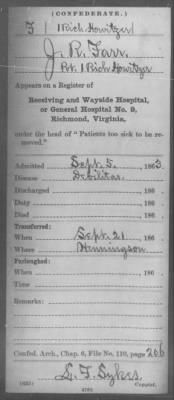 (CONFEDERATE.)
F 1 1 Rich Howitzer
J. R. Farr.
Pvt. 1 Rich Howitzer
Appears on a Register of
Receiving and Wayside Hospital,
or General Hospital No. 9,
Richmond, Virginia,
under the head of "Patients too sick to be re-
moved."
Admitted Sept. 5, 1863
Disease Debilitas.
Discharged , 186
Duty , 186
Died , 186
Transferred:
When Sept. 21 , 186
Where
Furloughed:
When , 186
Time
Remarks:
Confed. Arch., Chap. 6, File No. 110, page 206
L. T. Sykes
Copyist.